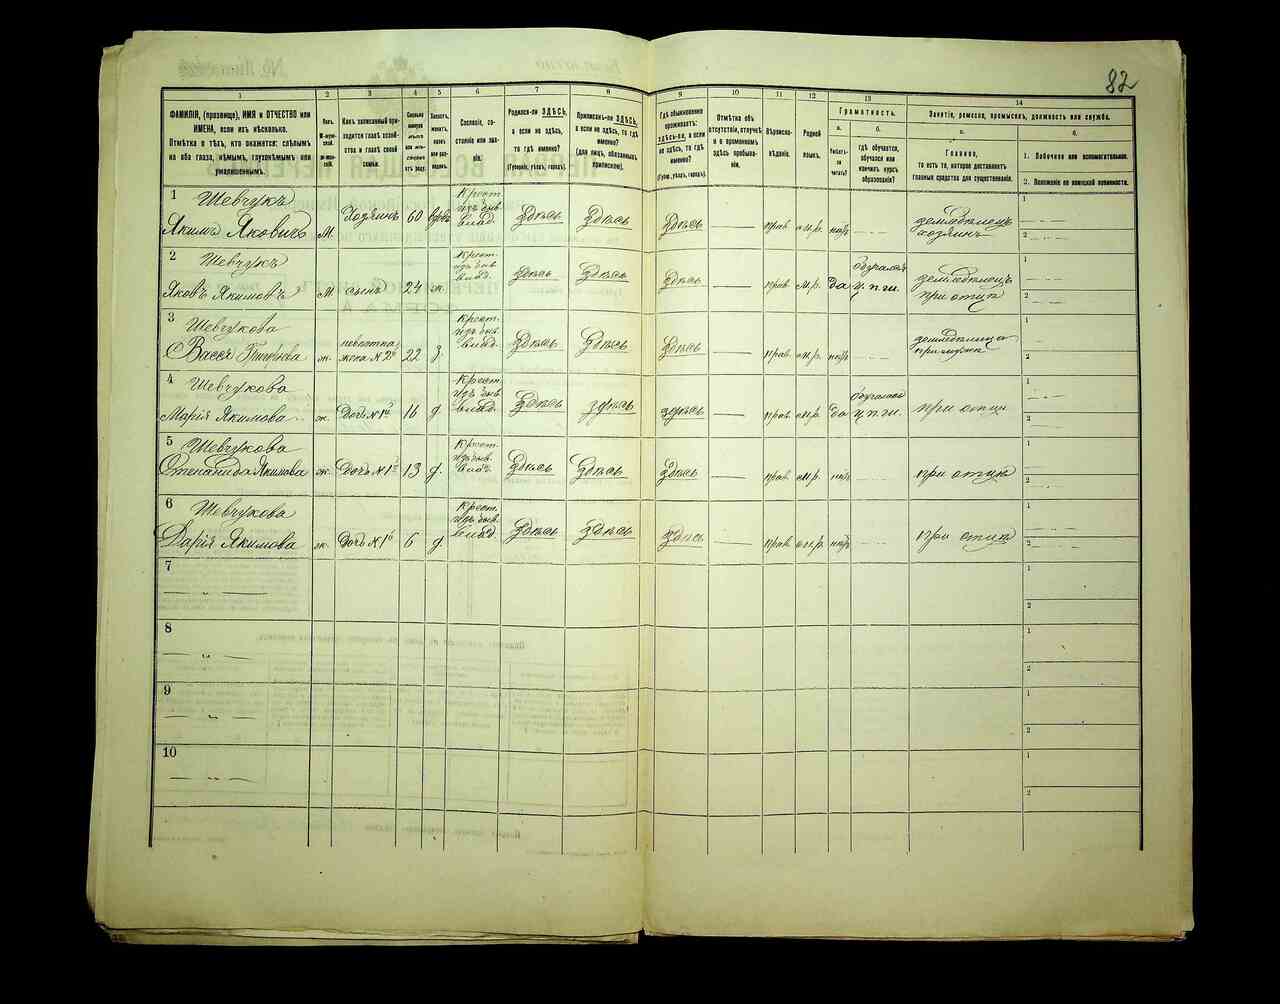 82
1
2
3
4
5
6
7
8
9
10
11
12
13
14
ФАМИЛІЯ, (прозвище), ИМЯ и ОТЧЕСТВО или
ИМЕНА, если ихъ нѣсколько.
Отмѣтка о тѣхъ, кто окажется: слѣпымъ
на оба глаза, нѣмымъ, глухонѣмымъ или
умалишеннымъ.
Полъ.
М-муж-
ской.
Ж-жен-
скій.
Какъ записанный при-
ходится главѣ хозяй-
ства и главѣ своей
семьи.
Сколько
минуло
лѣтъ
или мѣ-
сяцевъ
отъ роду.
Холостъ,
женатъ,
вдовъ
или раз-
веденъ.
Сословіе, со-
стояніе или зва-
ніе.
Родился-ли ЗДѢСЬ,
а если не здѣсь,
то гдѣ именно?
(Губернія, уѣздъ, городъ).
Приписанъ-ли ЗДѢСЬ,
а если не здѣсь, то гдѣ
именно?
(для лицъ, обязанныхъ
припискою).
Гдѣ обыкновенно
проживаетъ:
здѣсь-ли, а если
не здѣсь, то гдѣ
именно?
(Губ., уѣздъ, городъ).
Отмѣтка объ
отсутствіи, отлучкѣ
и о временномъ
здѣсь пребыва-
ніи.
Вѣроиспо-
вѣданіе.
Родной
языкъ.
Грамотность.
а.
Умѣетъ-
ли
читать?
б.
гдѣ обучается,
обучался или
кончилъ курсъ
образованія?
Занятіе, ремесло, промыселъ, должность или служба.
а.
Главное,
то есть то, которое доставляетъ
главныя средства для существованія.
б.
1. Побочное или вспомогательное.
2. Положеніе по воинской повинности.
1 Шевчукъ
Якимъ Яковичъ М. Хозяинъ 60 вдов Крест. изъ быв. влад. Здѣсь Здѣсь Здѣсь — прав м.р. нѣтъ земледѣлецъ хозяинъ 1 2
2 Шевчукъ
Яковъ Якимовъ М сынъ 24 ж. Крест. изъ быв. влад. Здѣсь Здѣсь Здѣсь — прав м.р. да обучался ц.п.ш. земледѣлецъ при отцѣ 1 2
3 Шевчукова
Васса Григорьева ж. невѣстка жена №2о 22 з. Крест. изъ быв. влад. Здѣсь Здѣсь Здѣсь — прав м.р. нѣтъ земледѣлица при мужѣ 1 2
4 Шевчукова
Марія Якимова ж. Дочь №1о 16 д. Крест. изъ быв. влад. Здѣсь здѣсь здѣсь — прав м.р. да обучалась ц.п.ш. при отцѣ 1 2
5 Шевчукова
Степанида Якимова ж. Дочь №1о 13 д. Крест. изъ быв. влад. Здѣсь Здѣсь Здѣсь — прав м.р. нѣтъ при отцѣ 1 2
6 Шевчукова
Дарія Якимова ж. Дочь №1о 6 д. Крест. изъ быв. влад. Здѣсь Здѣсь здѣсь — прав м.р. нѣтъ при отцѣ 1 2
7 1 2
8 1 2
9 1 2
10 1 2